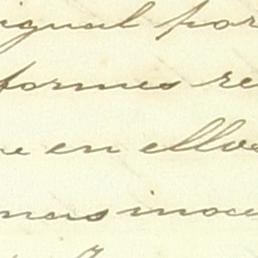 igual por
formes re
e en ellos
mas inoc